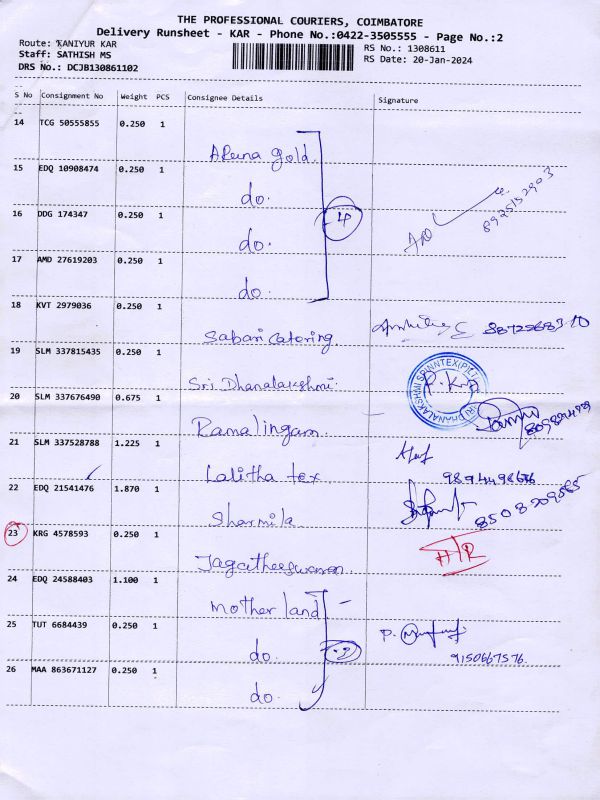 THE PROFESSIONAL COURIERS, COIMBATORE
Delivery Runsheet - KAR - Phone No.:0422-3505555 - Page No.:2
Route: KANIYUR KAR
Staff: SATHISH MS
DRS No.: DCJB130861102
RS No.: 1308611
RS Date: 20-Jan-2024
S No Consignment No Weight PCS Consignee Details Signature
14 TCG 50555855 0.250 1 Aruna gold.
15 EDQ 10908474 0.250 1 do.
16 DDG 174347 0.250 1 do.
4
8925152903
17 AMD 27619203 0.250 1 do.
18 KVT 2979036 0.250 1 Sabari Catering.
19 SLM 337815435 0.250 1 Sri Dhanalakshmi.
20 SLM 337676490 0.675 1 Ramalingam.
21 SLM 337528788 1.225 1 Lalitha tex
9894498676
22 EDQ 21541476 1.870 1 Sharmila
8508209585
23 KRG 4578593 0.250 1 Jagatheeswaran.
H/R
24 EDQ 24588403 1.100 1 Mother land
25 TUT 6684439 0.250 1 do.
9150667576
26 MAA 863671127 0.250 1 do.